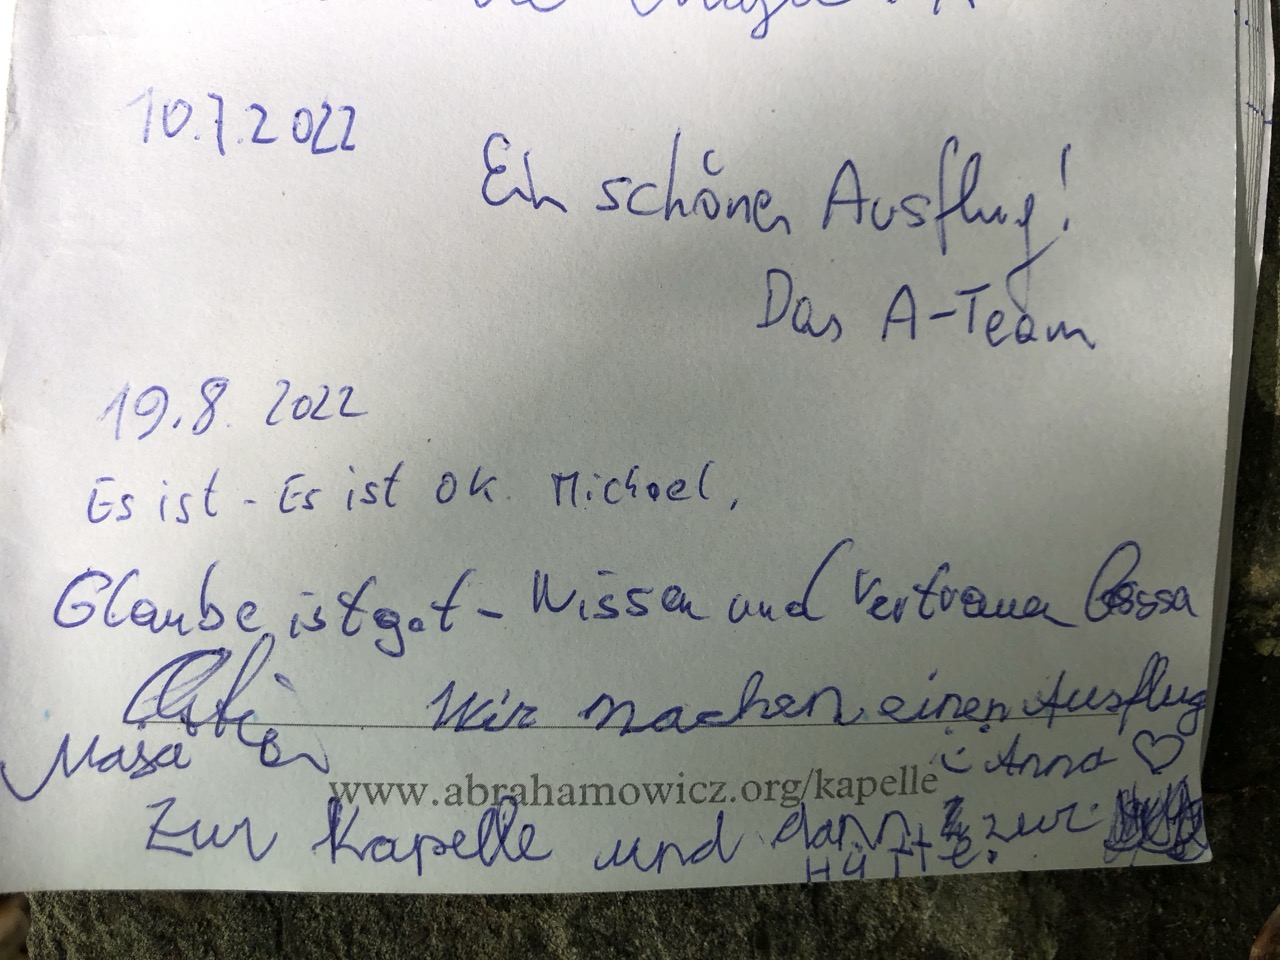 10.7.2022
Ein schöner Ausflug!
Das A-Team
19.8. 2022
Es ist - Es ist OK Michael,
Glaube ist gut - Wissen und Vertrauen
Wir machen einen Ausflug
Anna ♡
www.abrahamowicz.org/kapelle
Zur Kapelle und dann zur
HÜTTE.